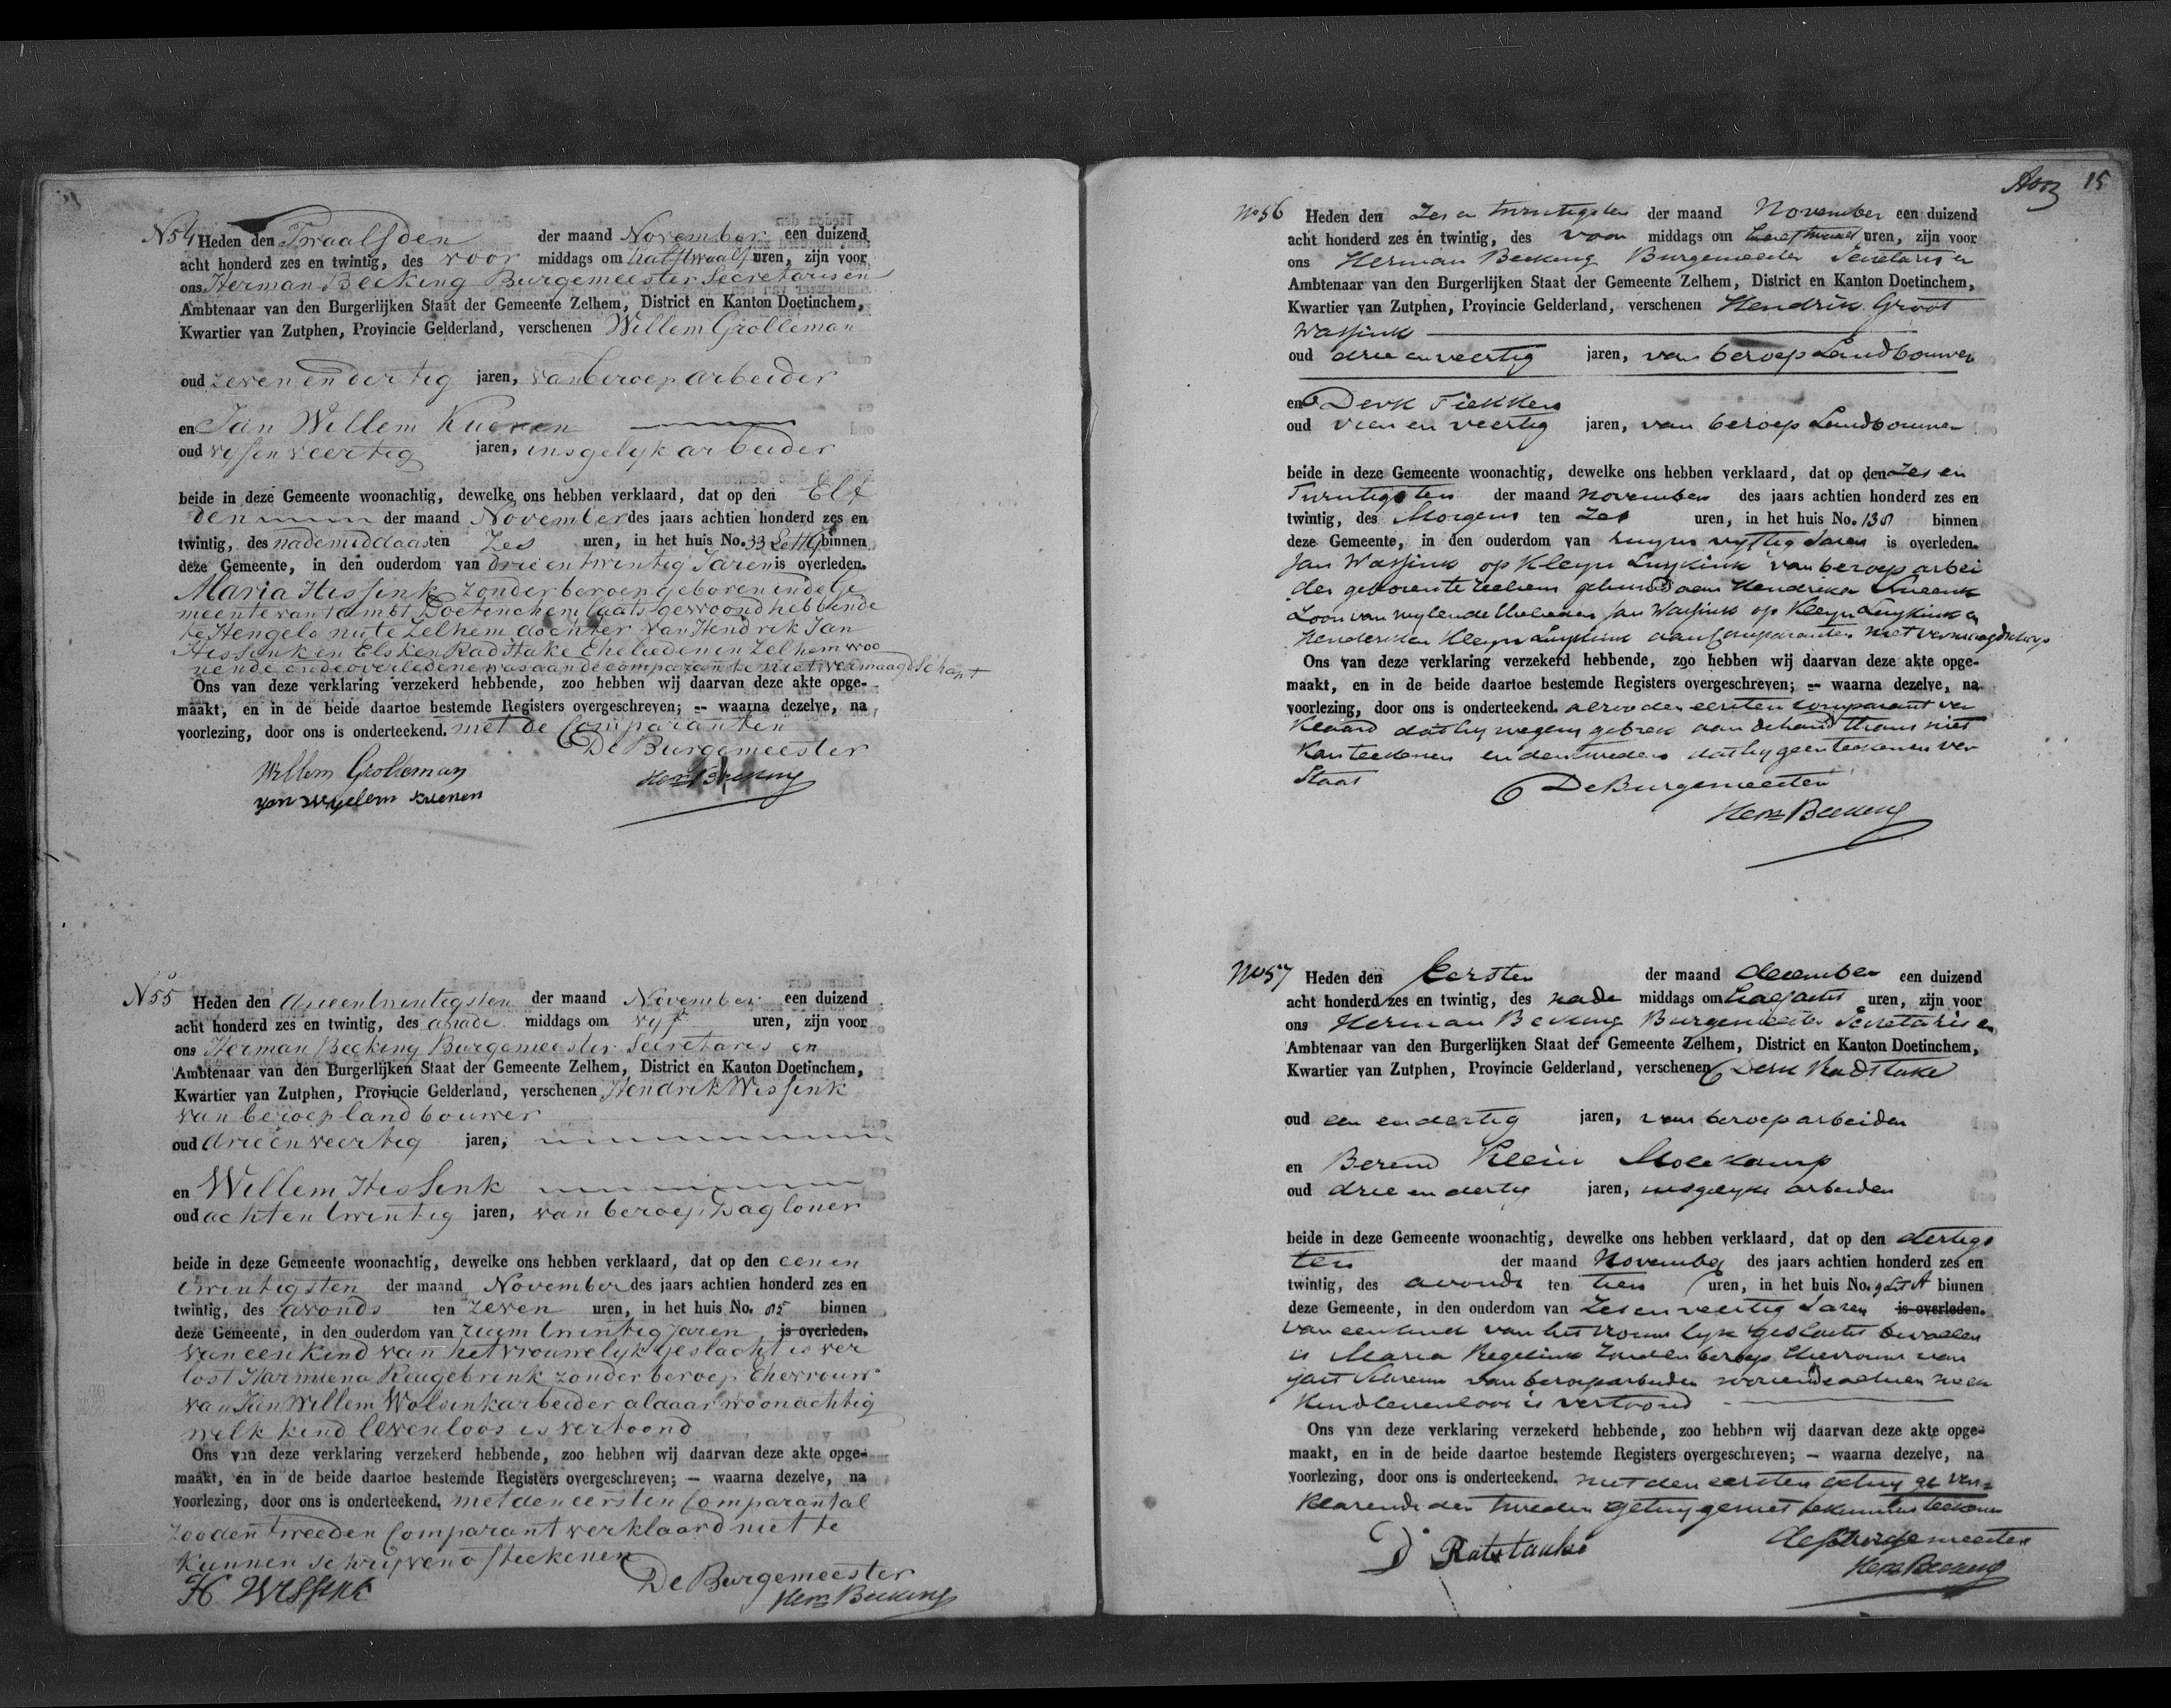 N54 Heden den Twaalfden der maand November een duizend
acht honderd zes en twintig, des voor middags om half twaalf uren, zijn voor
ons Herman Becking Burgemeester Secretaris en
Ambtenaar van den Burgerlijken Staat der Gemeente Zelhem, District en Kanton Doetinchem,
Kwartier van Zutphen, Provincie Gelderland, verschenen Willem Grolleman
oud zeven en dertig jaren, van beroep arbeider
en Jan Willem Kuenen
oud vyf en veertig jaren, insgelyk arbeider
beide in deze Gemeente woonachtig, dewelke ons hebben verklaard, dat op den Elf
den der maand November des jaars achtien honderd zes en
twintig, des nademiddaas ten Zes uren, in het huis No. 33 Lett G binnen
deze Gemeente, in den ouderdom van drie en twintig Jaren is overleden.
Maria Hissink zonder beroep geboren in de Ge
meente van Ambt Doetinchem laatst gewoond hebbende
te Hengelo nu te Zelhem dochter van Hendrik Jan
Hissink en Elsken Radstake Ehelieden in Zelhem woo
nende en de overledene was aan de comparanten niet vermaagdschapt
Ons van deze verklaring verzekerd hebbende, zoo hebben wij daarvan deze akte opge-
maakt, en in de beide daartoe bestemde Registers overgeschreven; — waarna dezelve, na
voorlezing, door ons is onderteekend. met de Comparanten
De Burgemeester
Willem Grolleman
Herm Becking
Jan Willem Kuenen
N55 Heden den drieentwintigsten der maand November een duizend
acht honderd zes en twintig, des anade middags om vyf uren, zijn voor
ons Herman Becking Burgemeester Secretaris en
Ambtenaar van den Burgerlijken Staat der Gemeente Zelhem, District en Kanton Doetinchem,
Kwartier van Zutphen, Provincie Gelderland, verschenen Hendrik Wissink
van beroep landbouwer
oud drieenveertig jaren,
en Willem Hissink
oud achtentwintig jaren, van beroep Dagloner
beide in deze Gemeente woonachtig, dewelke ons hebben verklaard, dat op den eenen
twintigsten der maand November des jaars achtien honderd zes en
twintig, des avonds ten zeven uren, in het huis No. 85 binnen
deze Gemeente, in den ouderdom van ruim twintig Jaren is overleden.
van een kind van het vrouwelyk geslacht is ver
lost Harmiena Ruugebrink zonder beroep Ehevrouw
van Jan Willem Wolsink arbeider aldaar woonachtig
welk kind levenloos is vertoond
Ons van deze verklaring verzekerd hebbende, zoo hebben wij daarvan deze akte opge-
maakt, en in de beide daartoe bestemde Registers overgeschreven; — waarna dezelve, na
voorlezing, door ons is onderteekend. met den eersten Comparant al
zoo den tweeden Comparant verklaard niet te
kunnen schrijven of teekenen
De Burgemeester
H Wissink
Herm Becking
Aoz 15
No 56 Heden den Zes en twintigsten der maand November een duizend
acht honderd zes en twintig, des voor middags om half twaalf uren, zijn voor
ons Herman Becking Burgemeester Secretaris en
Ambtenaar van den Burgerlijken Staat der Gemeente Zelhem, District en Kanton Doetinchem,
Kwartier van Zutphen, Provincie Gelderland, verschenen Hendrik Groot
Wassink
oud drie en veertig jaren, van beroep Landbouwer
en Derk Tiekken
oud vier en veertig jaren, van beroep Landbouwer
beide in deze Gemeente woonachtig, dewelke ons hebben verklaard, dat op den Zes en
Twintigsten der maand november des jaars achtien honderd zes en
twintig, des Morgens ten Zes uren, in het huis No. 138 binnen
deze Gemeente, in den ouderdom van vyftig Jaren is overleden.
Jan Wassink op Kleyn Luykink van beroep arbei
der geboren te Zelhem gehuwd aan Hendrika
Zoon van wylen de Ehelieden Jan Wassink op Kleyn Luykink en
Henderika Kleyn Luykink aan Comparanten niet vermaagdschapt
Ons van deze verklaring verzekerd hebbende, zoo hebben wij daarvan deze akte opge-
maakt, en in de beide daartoe bestemde Registers overgeschreven; — waarna dezelve, na
voorlezing, door ons is onderteekend. alzoo den eersten comparant ver
klaard dat hy wegens gebrek aan de hand thans niet
kan teekenen en den tweeden dat hy geen teekenen ver
staat
De Burgemeester
Herm Becking
No 57 Heden den Eersten der maand december een duizend
acht honderd zes en twintig, des nade middags om half acht uren, zijn voor
ons Herman Becking Burgemeester Secretaris en
Ambtenaar van den Burgerlijken Staat der Gemeente Zelhem, District en Kanton Doetinchem,
Kwartier van Zutphen, Provincie Gelderland, verschenen Derk Radstake
oud een en dertig jaren, van beroep arbeider
en Berend Klein Molekamp
oud drie en dertig jaren, insgelyks arbeider
beide in deze Gemeente woonachtig, dewelke ons hebben verklaard, dat op den dertigs
ten der maand November des jaars achtien honderd zes en
twintig, des avonds ten tien uren, in het huis No. 9 Lit A binnen
deze Gemeente, in den ouderdom van Zes en veertig Jaren is overleden.
van een kind van het vrouwlyk geslacht bevallen
is Maria Regelink zonder beroep Ehevrouw van
van beroep arbeider
kind levenloos is vertoond
Ons van deze verklaring verzekerd hebbende, zoo hebben wij daarvan deze akte opge-
maakt, en in de beide daartoe bestemde Registers overgeschreven; — waarna dezelve, na
voorlezing, door ons is onderteekend. met den eersten getuige ver-
klarende den tweeden getuyge niet te kunnen teekenen
de Burgemeester
D Ratstaake
Herm Becking